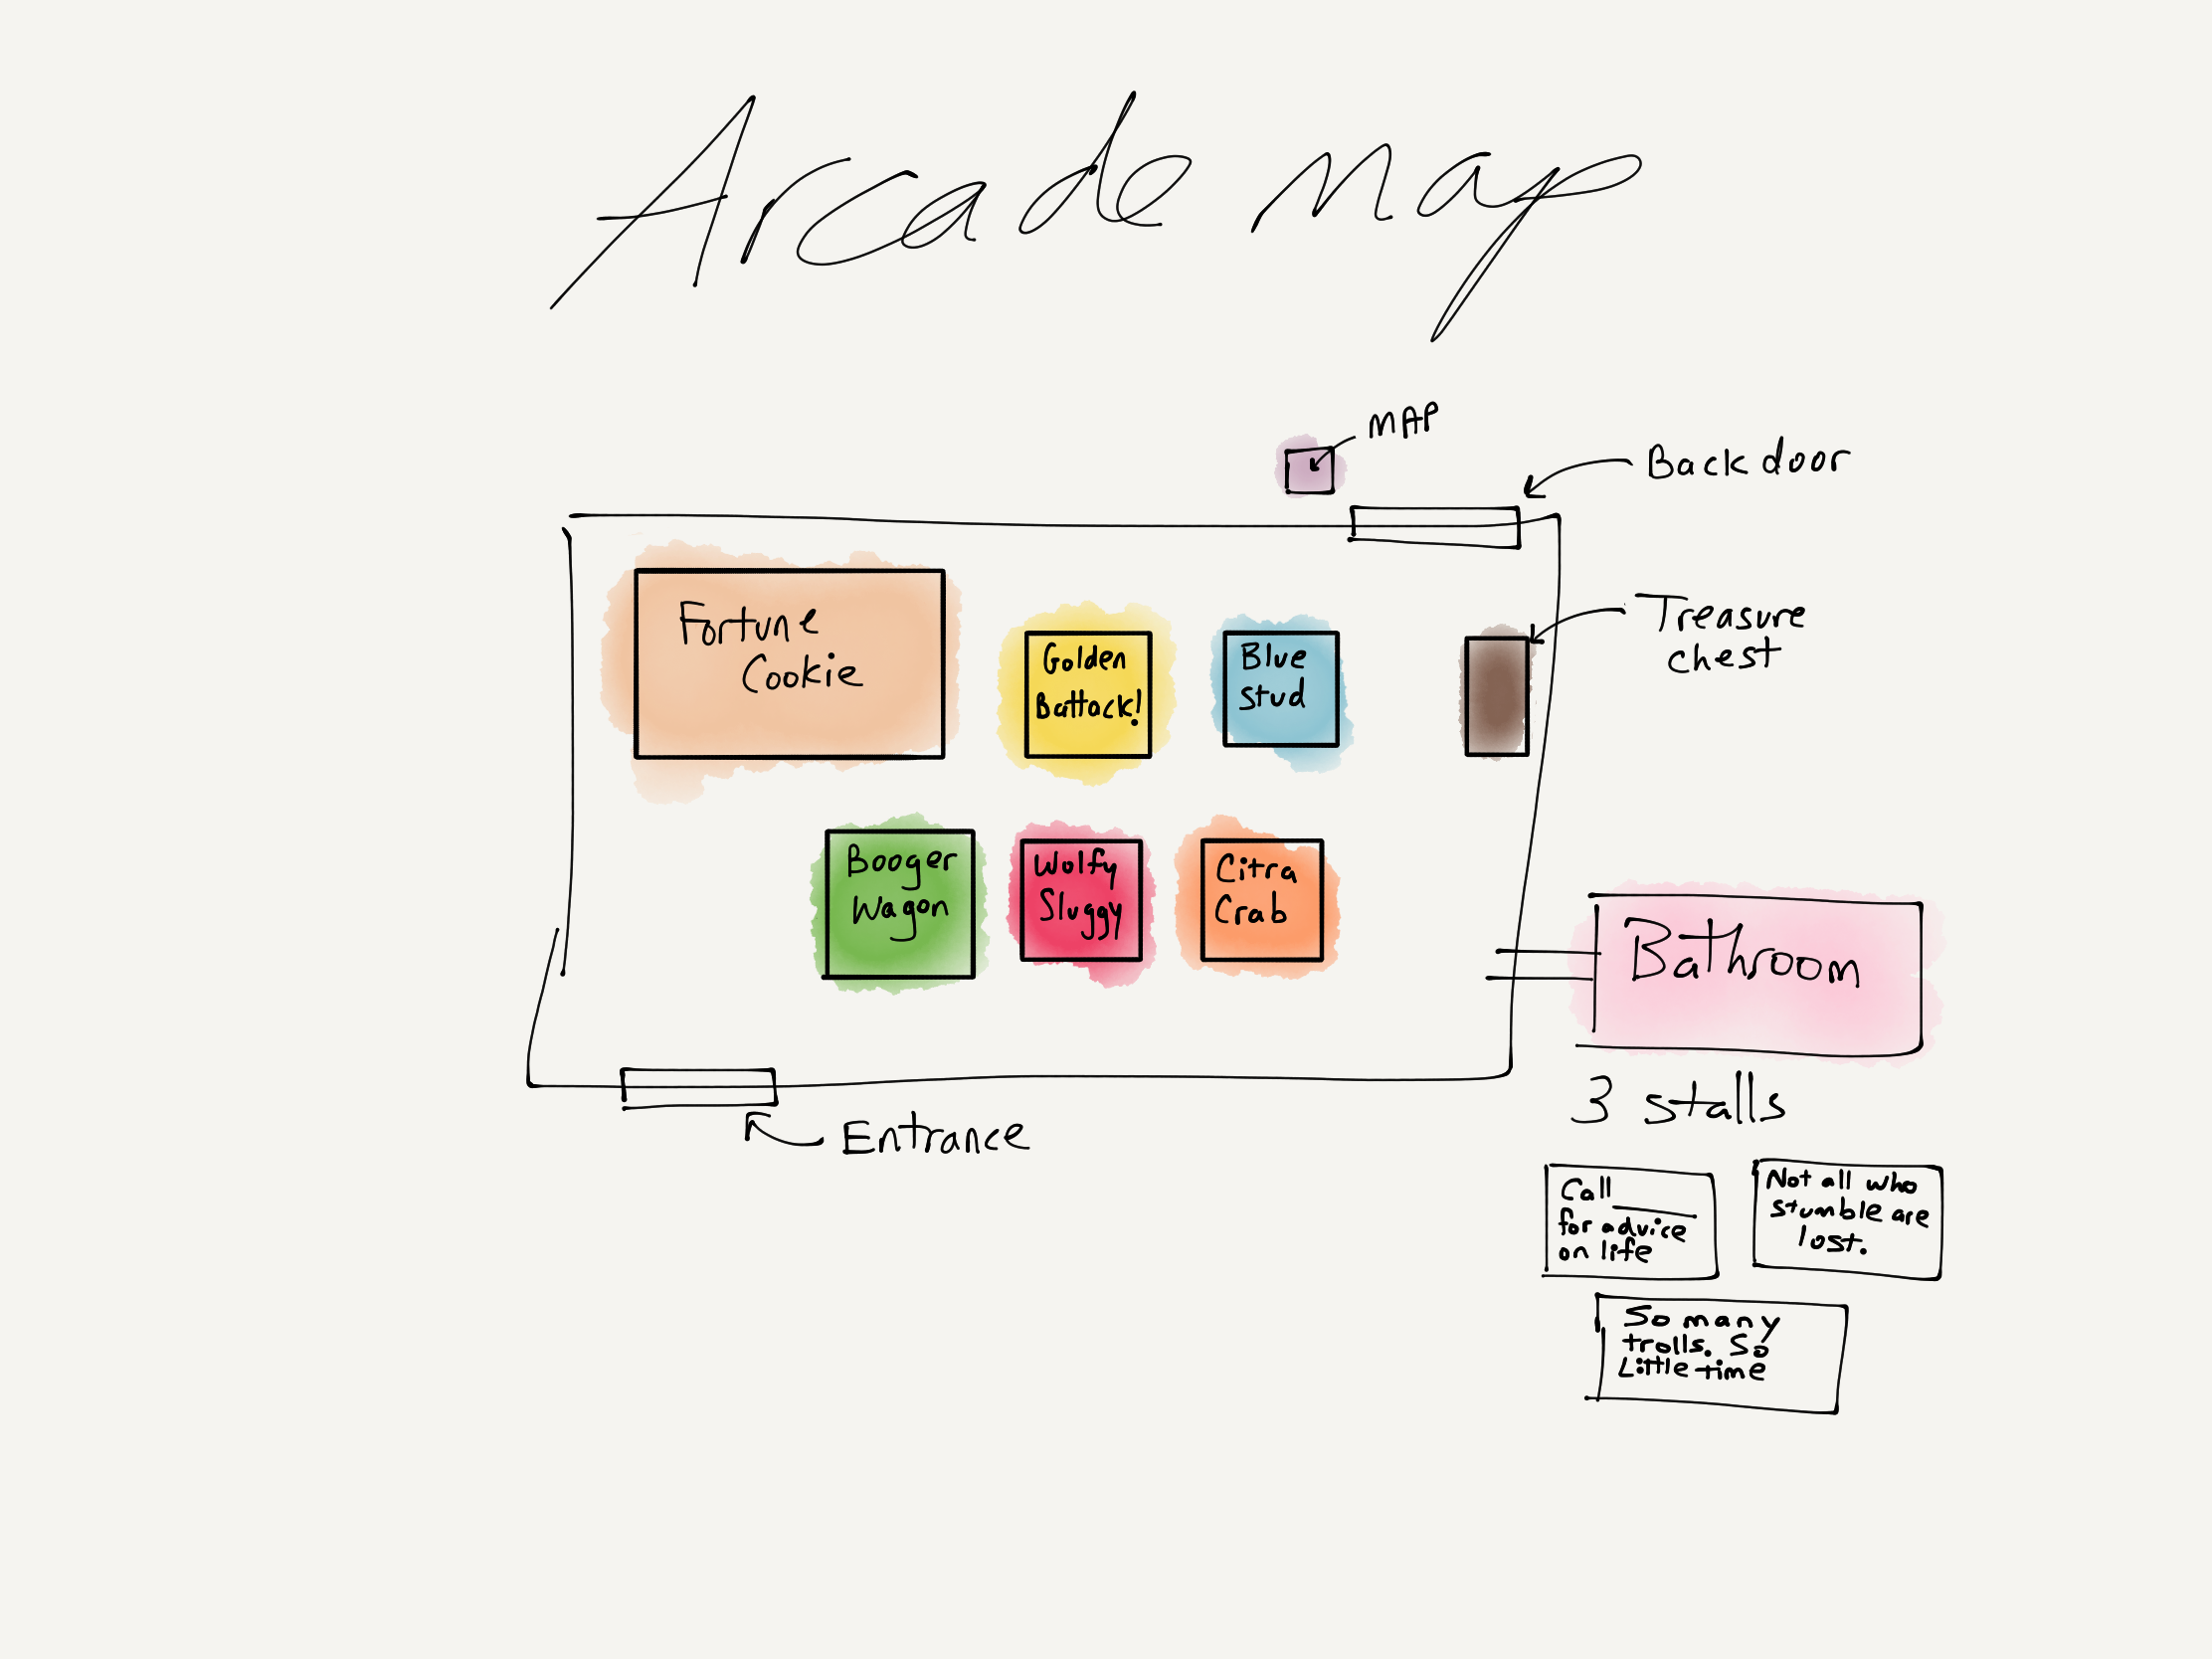 Arcade map
MAP
Back door
Treasure
chest
Fortune
Cookie
Golden
Battack!
Blue
Stud
Booger
Wagon
Wolfy
Sluggy
Citra
Crab
Bathroom
3 stalls
Entrance
Call ______
for advice
on life
Not all who
stumble are
lost.
So many
trolls. So
Little time